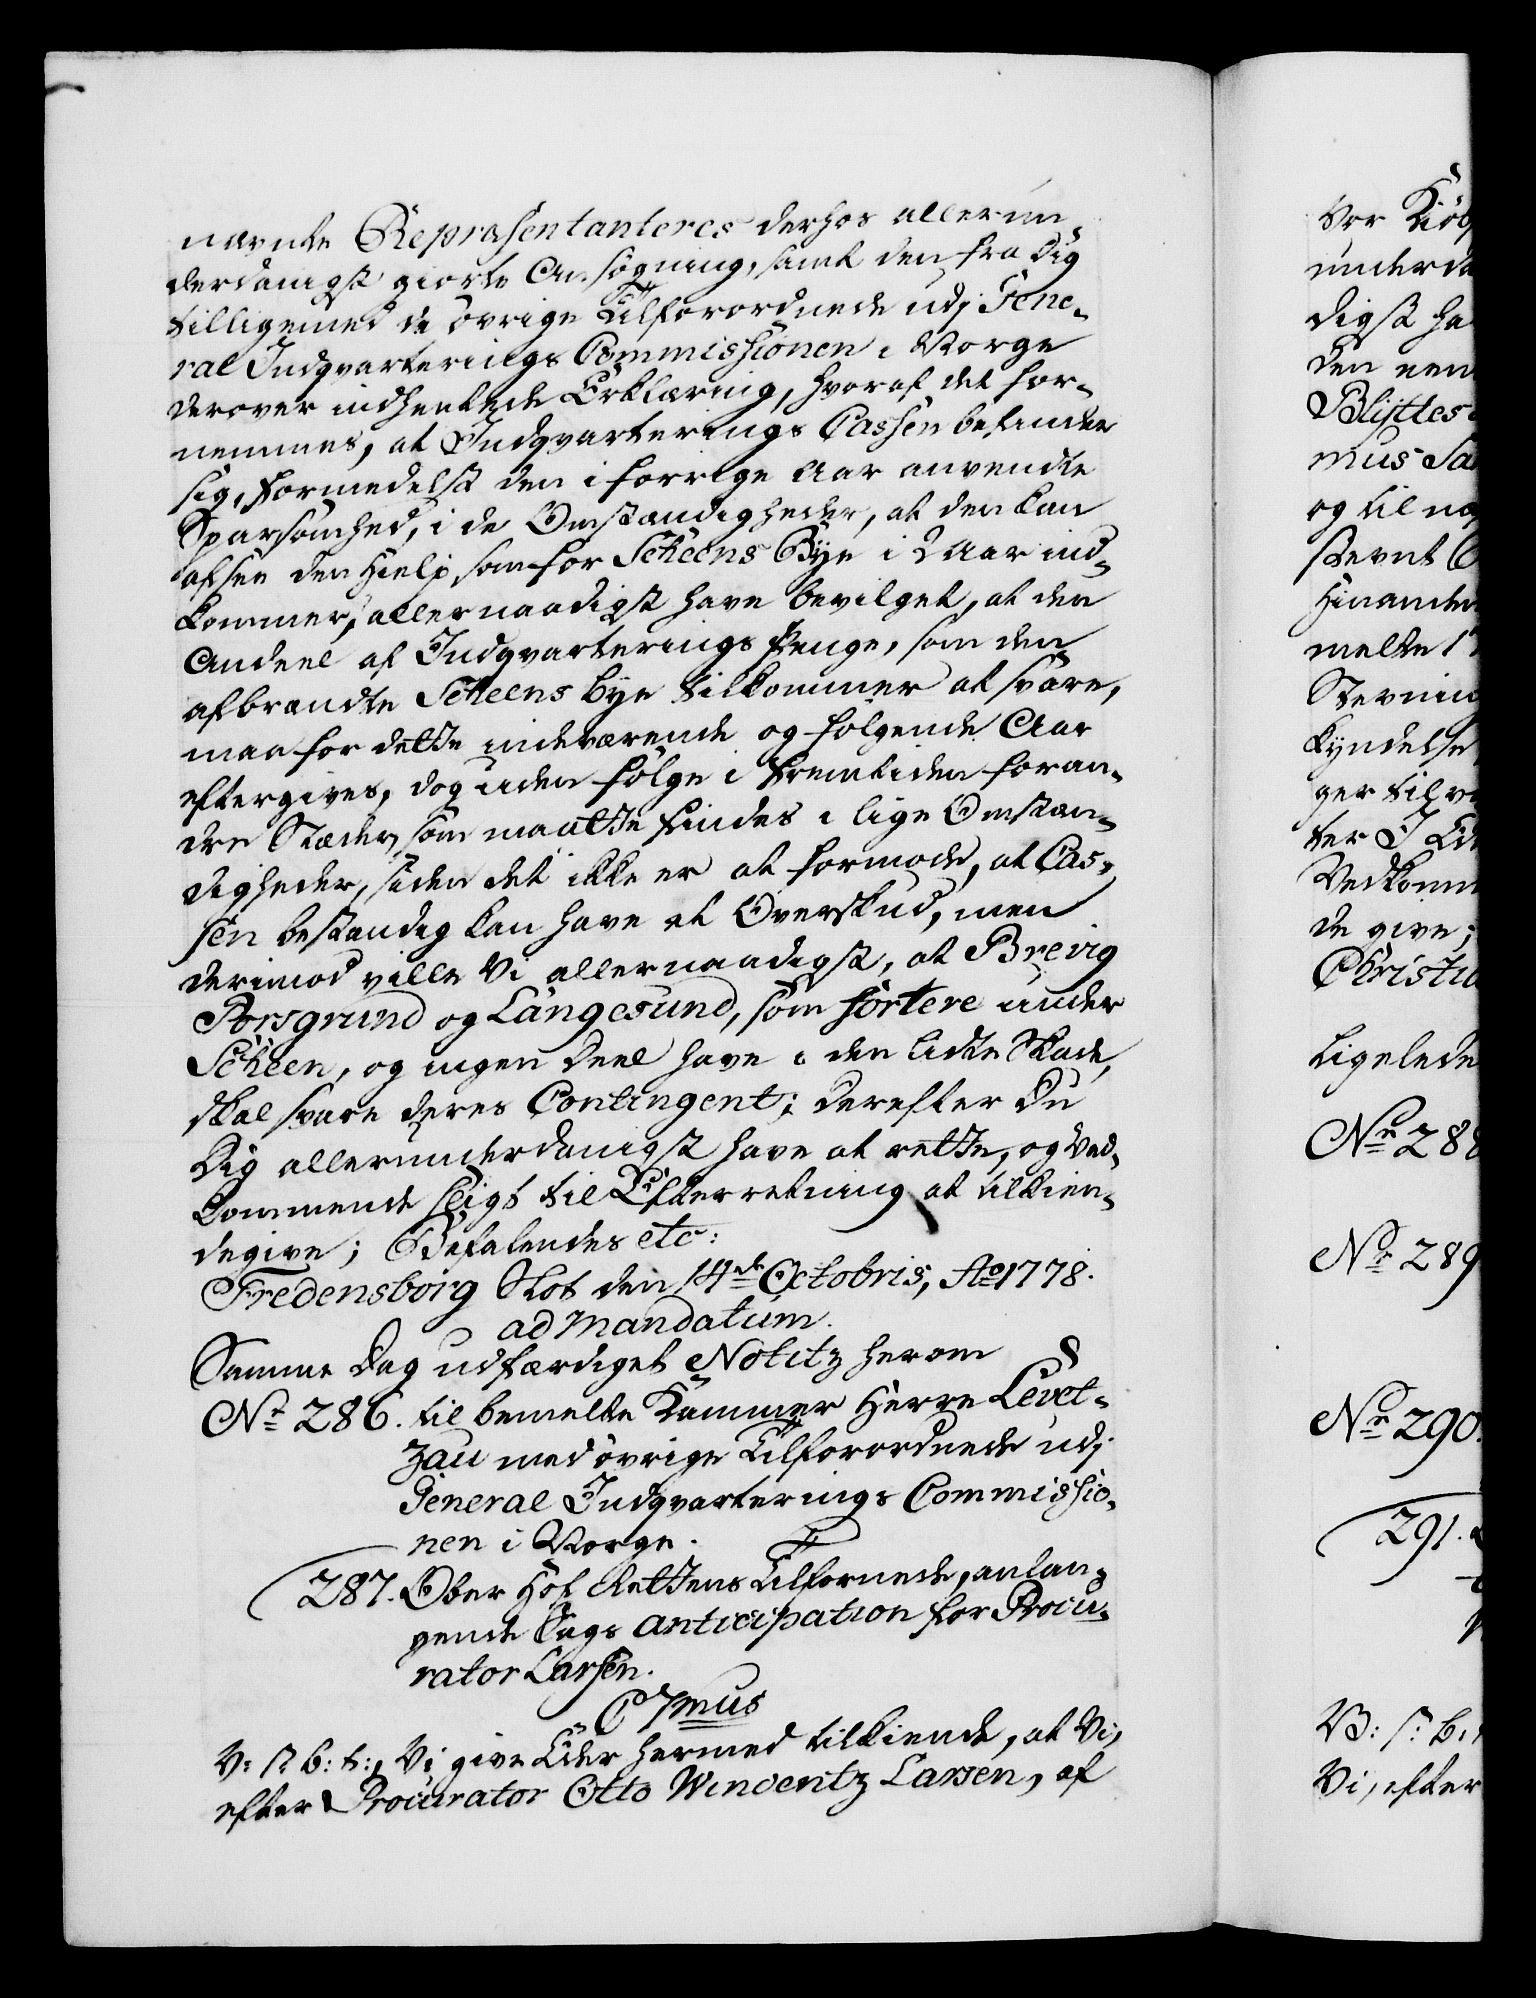 nævnte Repræsentanteres derhos allerun-
derdanigst giorte Ansøgning, samt den fra Dig
tilligemed de øvrige Tilforordnede udj Gene-
ral Indqvarterings Commissionen i Norge
derover indhentede Erklæring, hvoraf det for-
nemmes, at Indqvarterings Cassen befinder
sig, formedelst den i forrige Aar anvendte
Sparsomhed, i de Omstændigheder, at den kan
afsee den Hielp, som for Scheens Bye i 2 Aar ind-
kommer, allernaadigst have bevilget, at den
Andeel af Indqvarterings Penge, som den
afbrændte Scheens Bye tilkommer at svare,
maa for dette indeværende og følgende Aar
eftergives, dog uden Følge i Fremtiden for an-
dre Stæder, som maatte findes i lige Omstæn-
digheder, siden det ikke er at formode, at Cas-
sen bestandig kan have et Overskud, men
derimod ville Vi allernaadigst, at Brevig
Porsgrund og Langesund, som sortere under
Scheen, og ingen Deel have i den lidte Skade,
skal svare deres Contingent; Derefter Du
Dig allerunderdanigst have at rette, og Ved-
kommende sligt til Efterretning at tilkien-
degive; Befalendes etc:
Fredensborg Slot den 14de Octobris, Ao 1778.
ad Mandatum.
Samme Dag udfærdiget Notitz herom
No 286. til bemelte Kammer Herre Levet-
zau med øvrige Tilforordnede udj
General Indqvarterings Commissio-
nen i Norge.
287. Ober Hof Rettens Tilfornede, anlan-
gende Sags anticipation for Procu-
rator Larsen.
C 7mus
V: S: B: t:, Vi give Eder hermed tilkiende, at Vi,
efter Procurator Otto Windentz Larsen, af
Vor Kiøb
underda
digst ha
den nem
Blyttes
mus Sa
og til næ
stevnt
Hinanden
melte 17
Stevnin
kyndelse
ger til
ter I Ed
Vedkomm
de give;
Christia
Ligelede
No 288
No 289
No 290.
291.
V: S: B:
Vi, efter